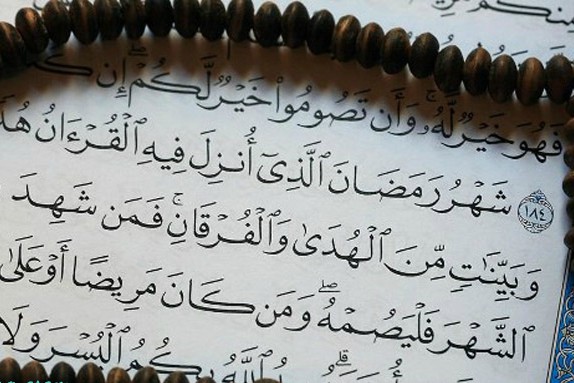 فَهُوَ خَيْرٌ لَّهُۥ ۚ وَأَن تَصُومُوا۟ خَيْرٌ لَّكُمْ ۖ إِن
١٨٤ شَهْرُ رَمَضَانَ ٱلَّذِىٓ أُنزِلَ فِيهِ ٱلْقُرْءَانُ
وَبَيِّنَـٰتٍ مِّنَ ٱلْهُدَىٰ وَٱلْفُرْقَانِ ۚ فَمَن شَهِدَ
ٱلشَّهْرَ فَلْيَصُمْهُ ۖ وَمَن كَانَ مَرِيضًا أَوْ عَلَىٰ
ٱللَّهُ بِكُمُ ٱلْيُسْرَ وَلَا